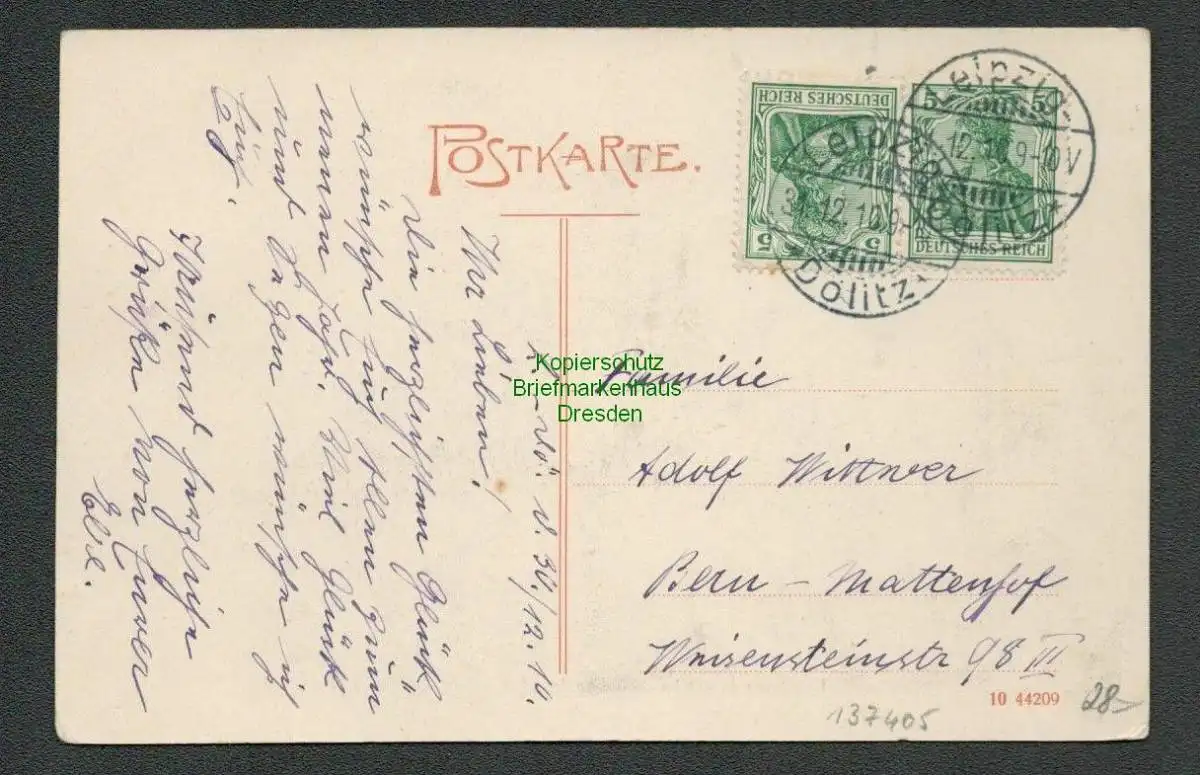 POSTKARTE.
5 5
DEUTSCHES REICH
5 5
DEUTSCHES REICH
Leipzig-
12.10 9-10V
Dölitz
Leipzig-
12.10.9-10V
Dölitz
Kopierschutz
Briefmarkenhaus
Dresden
d. 30./12.10.
Ihr Lieben!
Die herzlichsten Glück
wünsche Euch Allen zum
neuen Jahr. Viel Glück
und Segen wünsche ich
Euch.
herzliche
Grüßen von Eurer
Familie
Adolf Wittwer
Bern - Mattenhof
Weisensteinstr 98 III
10 44209
137405
28-